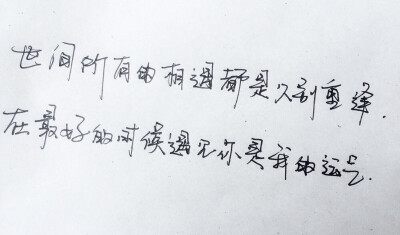 世间所有的相遇都是久别重逢.
在最好的时候遇见你是我的运气.